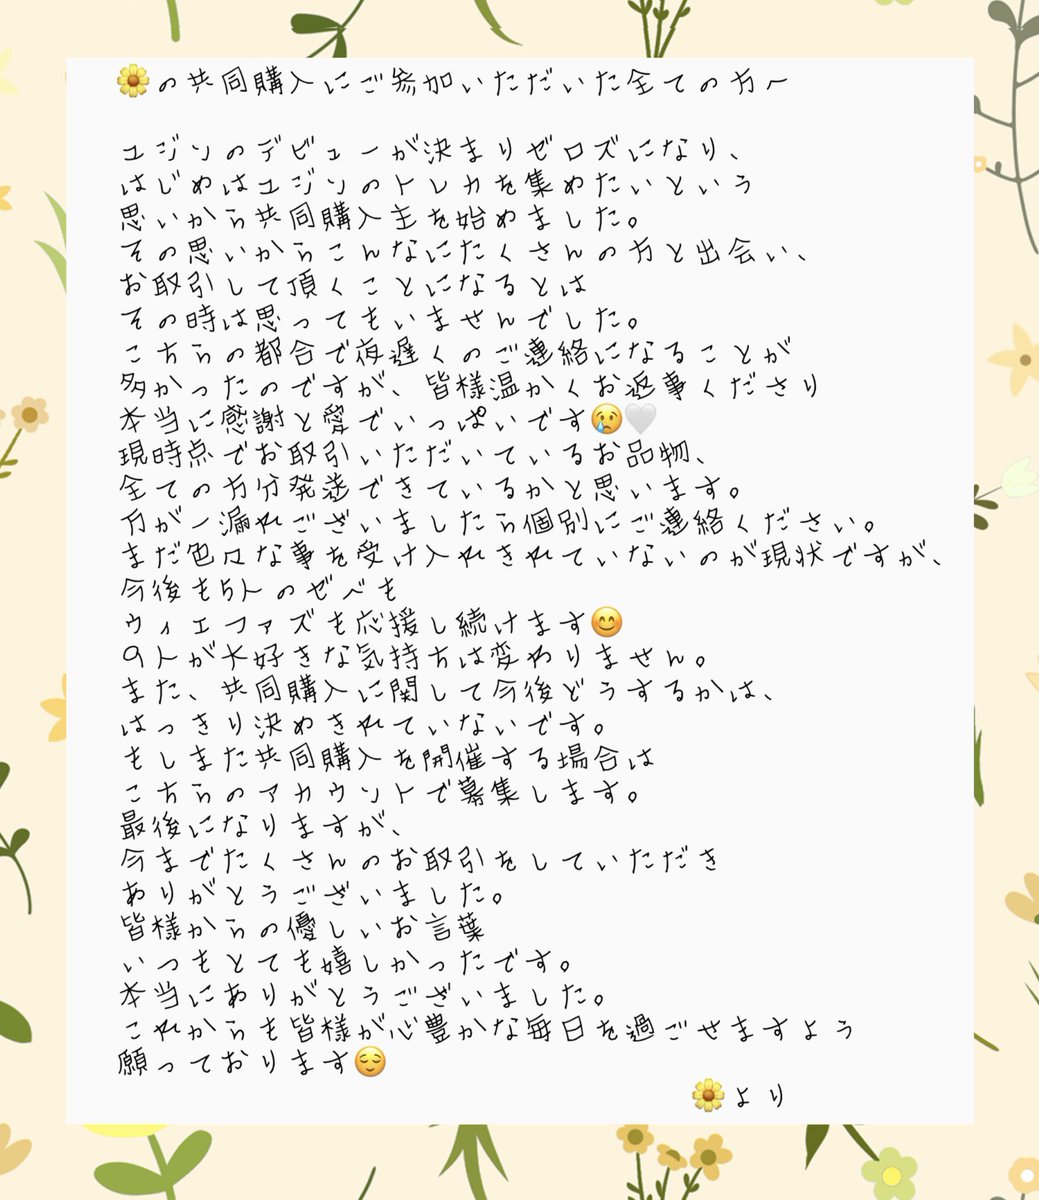 🌼の共同購入にご参加いただいた全ての方へ
ユジンのデビューが決まりゼロズになり、
はじめはユジンのトレカを集めたいという
思いから共同購入主を始めました。
その思いからこんなにたくさんの方と出会い、
お取引して頂くことになるとは
その時は思ってもいませんでした。
こちらの都合で夜遅くのご連絡になることが
多かったのですが、皆様温かくお返事くださり
本当に感謝と愛でいっぱいです😢🤍
現時点でお取引いただいているお品物、
全ての方分発送できているかと思います。
万が一漏れございましたら個別にご連絡ください。
まだ色々な事を受け入れきれていないのが現状ですが、
今後も5人のゼベも
ウィエファズも応援し続けます😊
9人が大好きな気持ちは変わりません。
また、共同購入に関して今後どうするかは、
はっきり決めきれていないです。
もしまた共同購入を開催する場合は
こちらのアカウントで募集します。
最後になりますが、
今までたくさんのお取引をしていただき
ありがとうございました。
皆様からの優しいお言葉
いつもとても嬉しかったです。
本当にありがとうございました。
これからも皆様が心豊かな毎日を過ごせますよう
願っております😌
🌼より